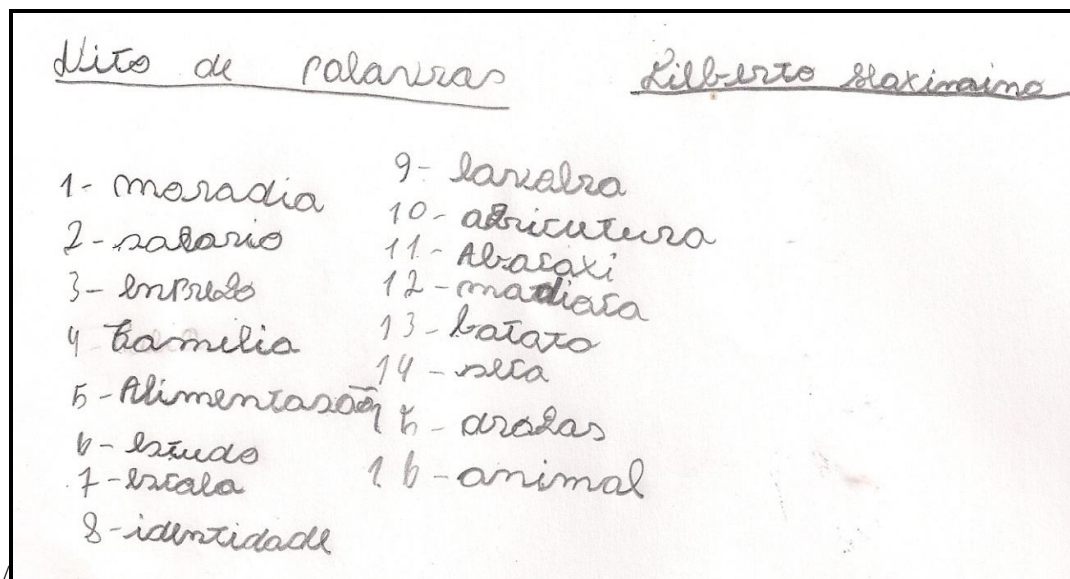 Dito de palavras
Gilberto Maximaino
1- moradia
2- salario
3- enprego
4 familia
5- Alimentasão
6- estudo
7- escala
8- identidade
9- lavalra
10- agricutura
11- Abacaxi
12- madioca
13- batato
14- seca
15- drogas
16- animal